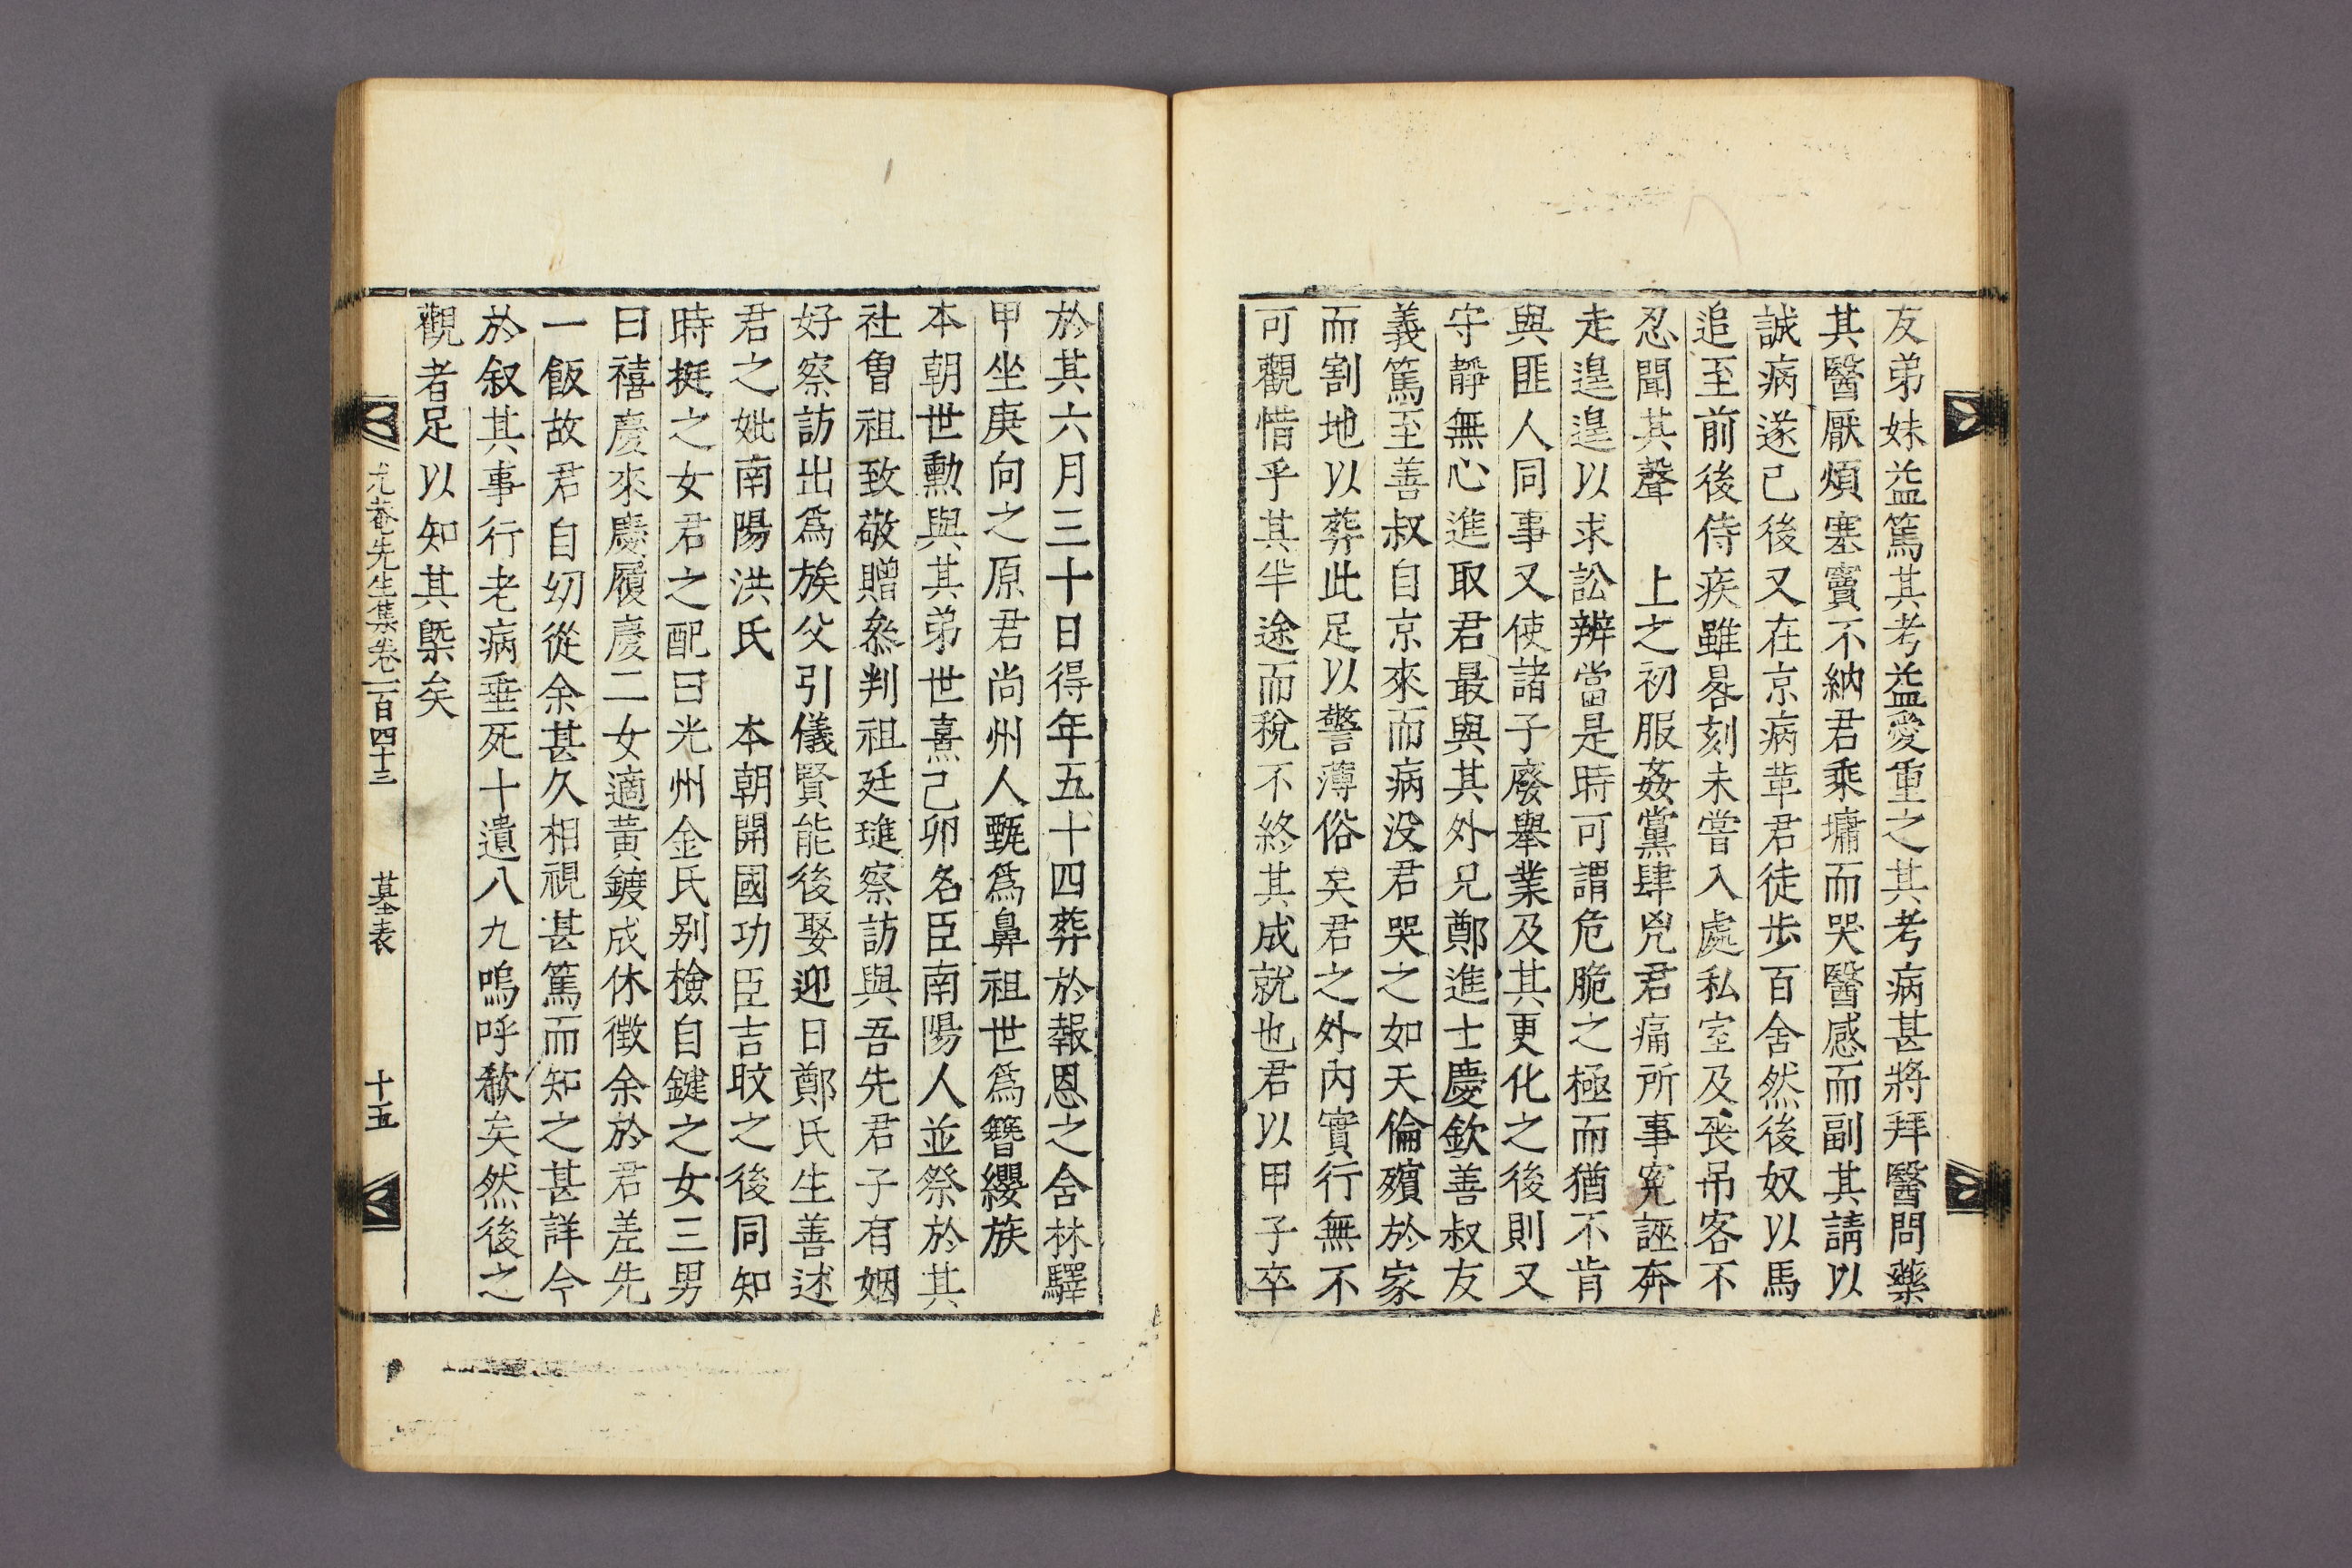 友弟妹益篤其考益愛重之其考病甚將拜醫問藥
其醫厭煩塞竇不納君乘墉而哭醫感而副其請以
誠病遂已後又在京病革君徒步百舍然後奴以馬
追至前後侍疾雖晷刻未嘗入處私室及喪吊客不
忍聞其聲　上之初服姦黨肆兇君痛所事寃誣奔
走遑遑以求訟辨當是時可謂危脆之極而猶不肯
與匪人同事又使諸子廢擧業及其更化之後則又
守靜無心進取君最與其外兄鄭進士慶欽善叔友
義篤至善叔自京來而病没君哭之如天倫殯於家
而割地以葬此足以警薄俗矣君之外內實行無不
可觀惜乎其半途而稅不終其成就也君以甲子卒
於其六月三十日得年五十四葬於報恩之舍林驛
甲坐庚向之原君尚州人甄爲鼻祖世爲簪纓族
本朝世勳與其弟世熹己卯名臣南陽人並祭於其
社曾祖致敬贈叅判祖廷璡察訪與吾先君子有姻
好察訪出爲族父引儀賢能後娶迎日鄭氏生善述
君之妣南陽洪氏　本朝開國功臣吉旼之後同知
時挺之女君之配曰光州金氏别檢自鍵之女三男
曰禧慶來慶履慶二女適黃鍍成休徵余於君差先
一飯故君自幼從余甚久相視甚篤而知之甚詳今
於叙其事行老病垂死十遺八九嗚呼欷矣然後之
觀者足以知其槩矣
尤菴先生集卷一百四十三　墓表　十五